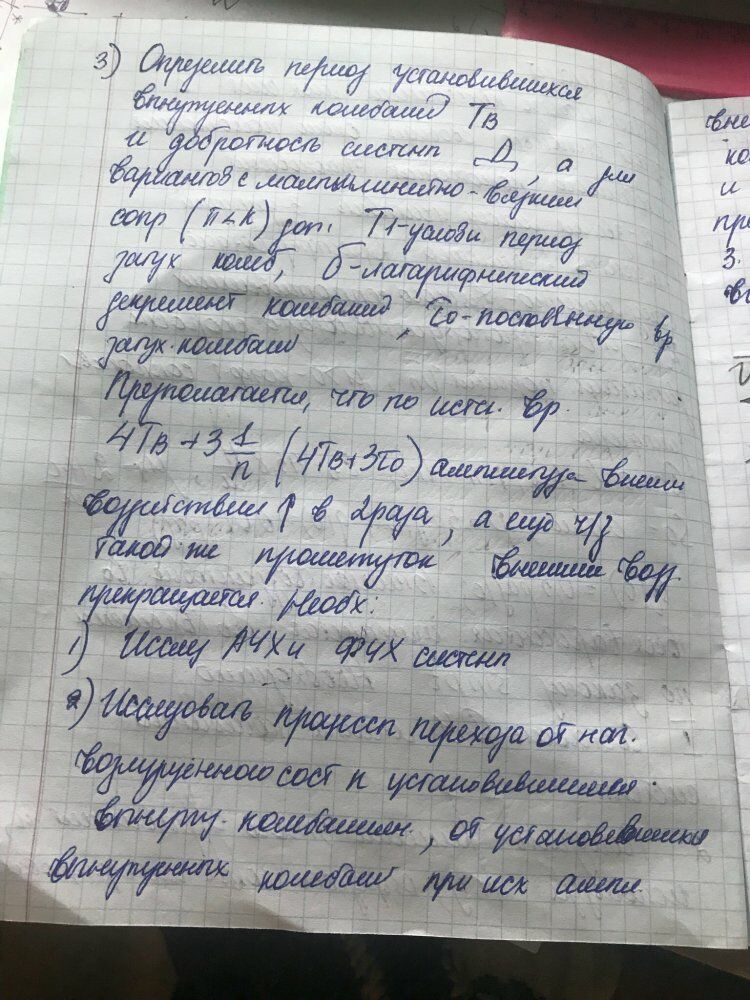 3) Определить период установившихся
вынужденных колебаний Tв
и добротность системы Д, а для
вариантов с малым линейно-вязким
сопр (n<k) доп. T1-условн период
затух колеб, δ-логарифмический
декремент колебаний, τ0-постоянную вр
затух.колебаний
Предполагается, что по истеч. вр.
4Tв+3 1/n (4Tв+3τ0) амплитуда внешн
воздействия ↑ в 2раза, а ещё ч/з
такой же промежуток внешнее возд.
прекращается. Необх:
1) Исслед АЧХ и ФЧХ системы
2) Исследовать процессы перехода от нач.
возмущённого сост к установившимся
вынужд. колебаниям, от установившихся
вынужденных колебаний при исх ампл.
вне
ко
и
пр
3.